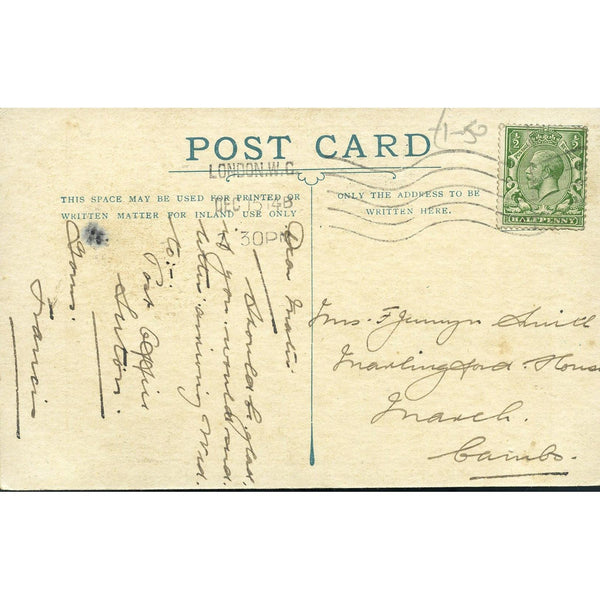 £1-50
POST CARD
LONDON.W.C.
DEC 15 14
30PM
½
½
HALFPENNY
THIS SPACE MAY BE USED FOR PRINTED OR
WRITTEN MATTER FOR INLAND USE ONLY
ONLY THE ADDRESS TO BE
WRITTEN HERE.
Dear Mater
Should be glad
if you would send
letters arriving Wed.
to:-
Post Office
Sutton.
Yours.
Francis
Mrs. F Jennyn Smith
Marlingford House
March.
Cambs.